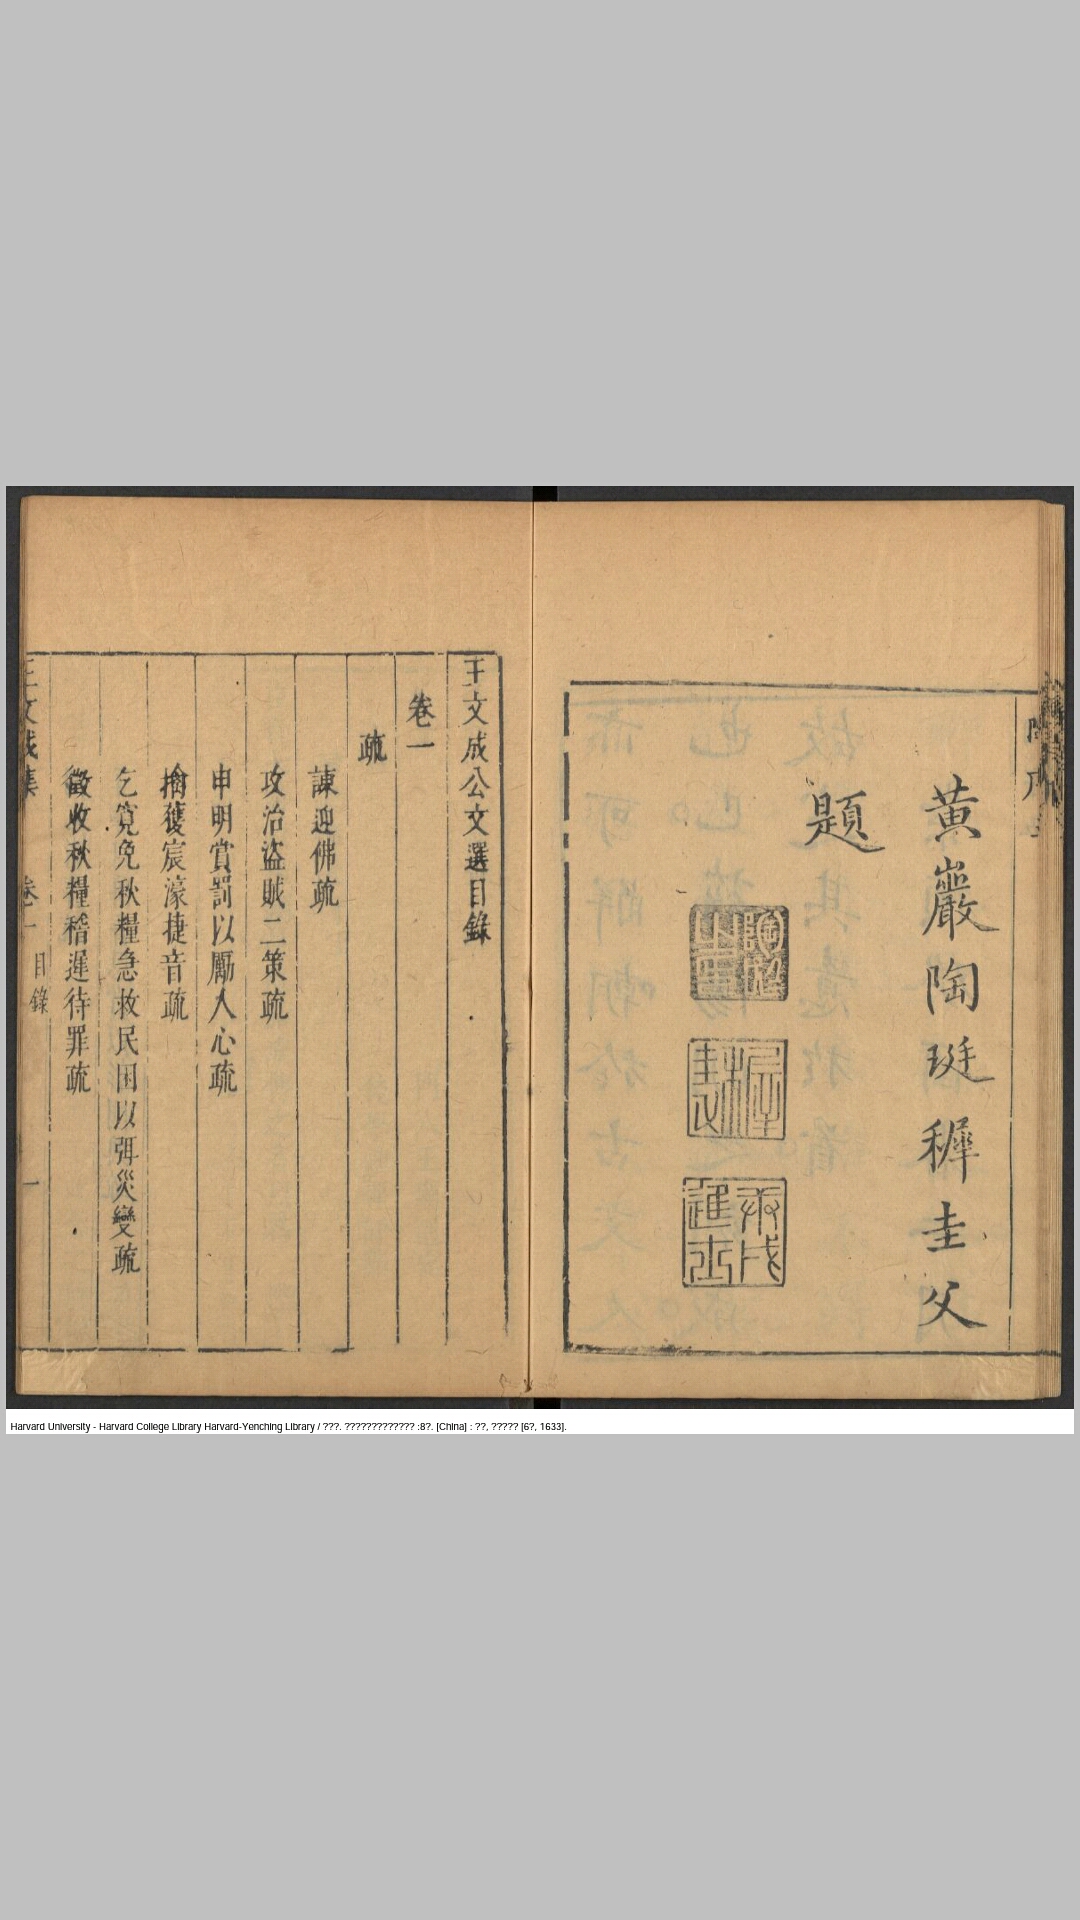 黃巖陶珽穉圭父
題
王文成公文選目錄
卷一
疏
諫迎佛疏
攻治盜賊二策疏
申明賞罰以厲人心疏
擒獲宸濠捷音疏
乞寬免秋糧急救民困以弭災變疏
徵收秋糧稽遲待罪疏
王文成集 卷一 目錄 一
Harvard University - Harvard College Library Harvard-Yenching Library / ???. ????????????? :8?. [China] : ??, ????? [6?, 1633].